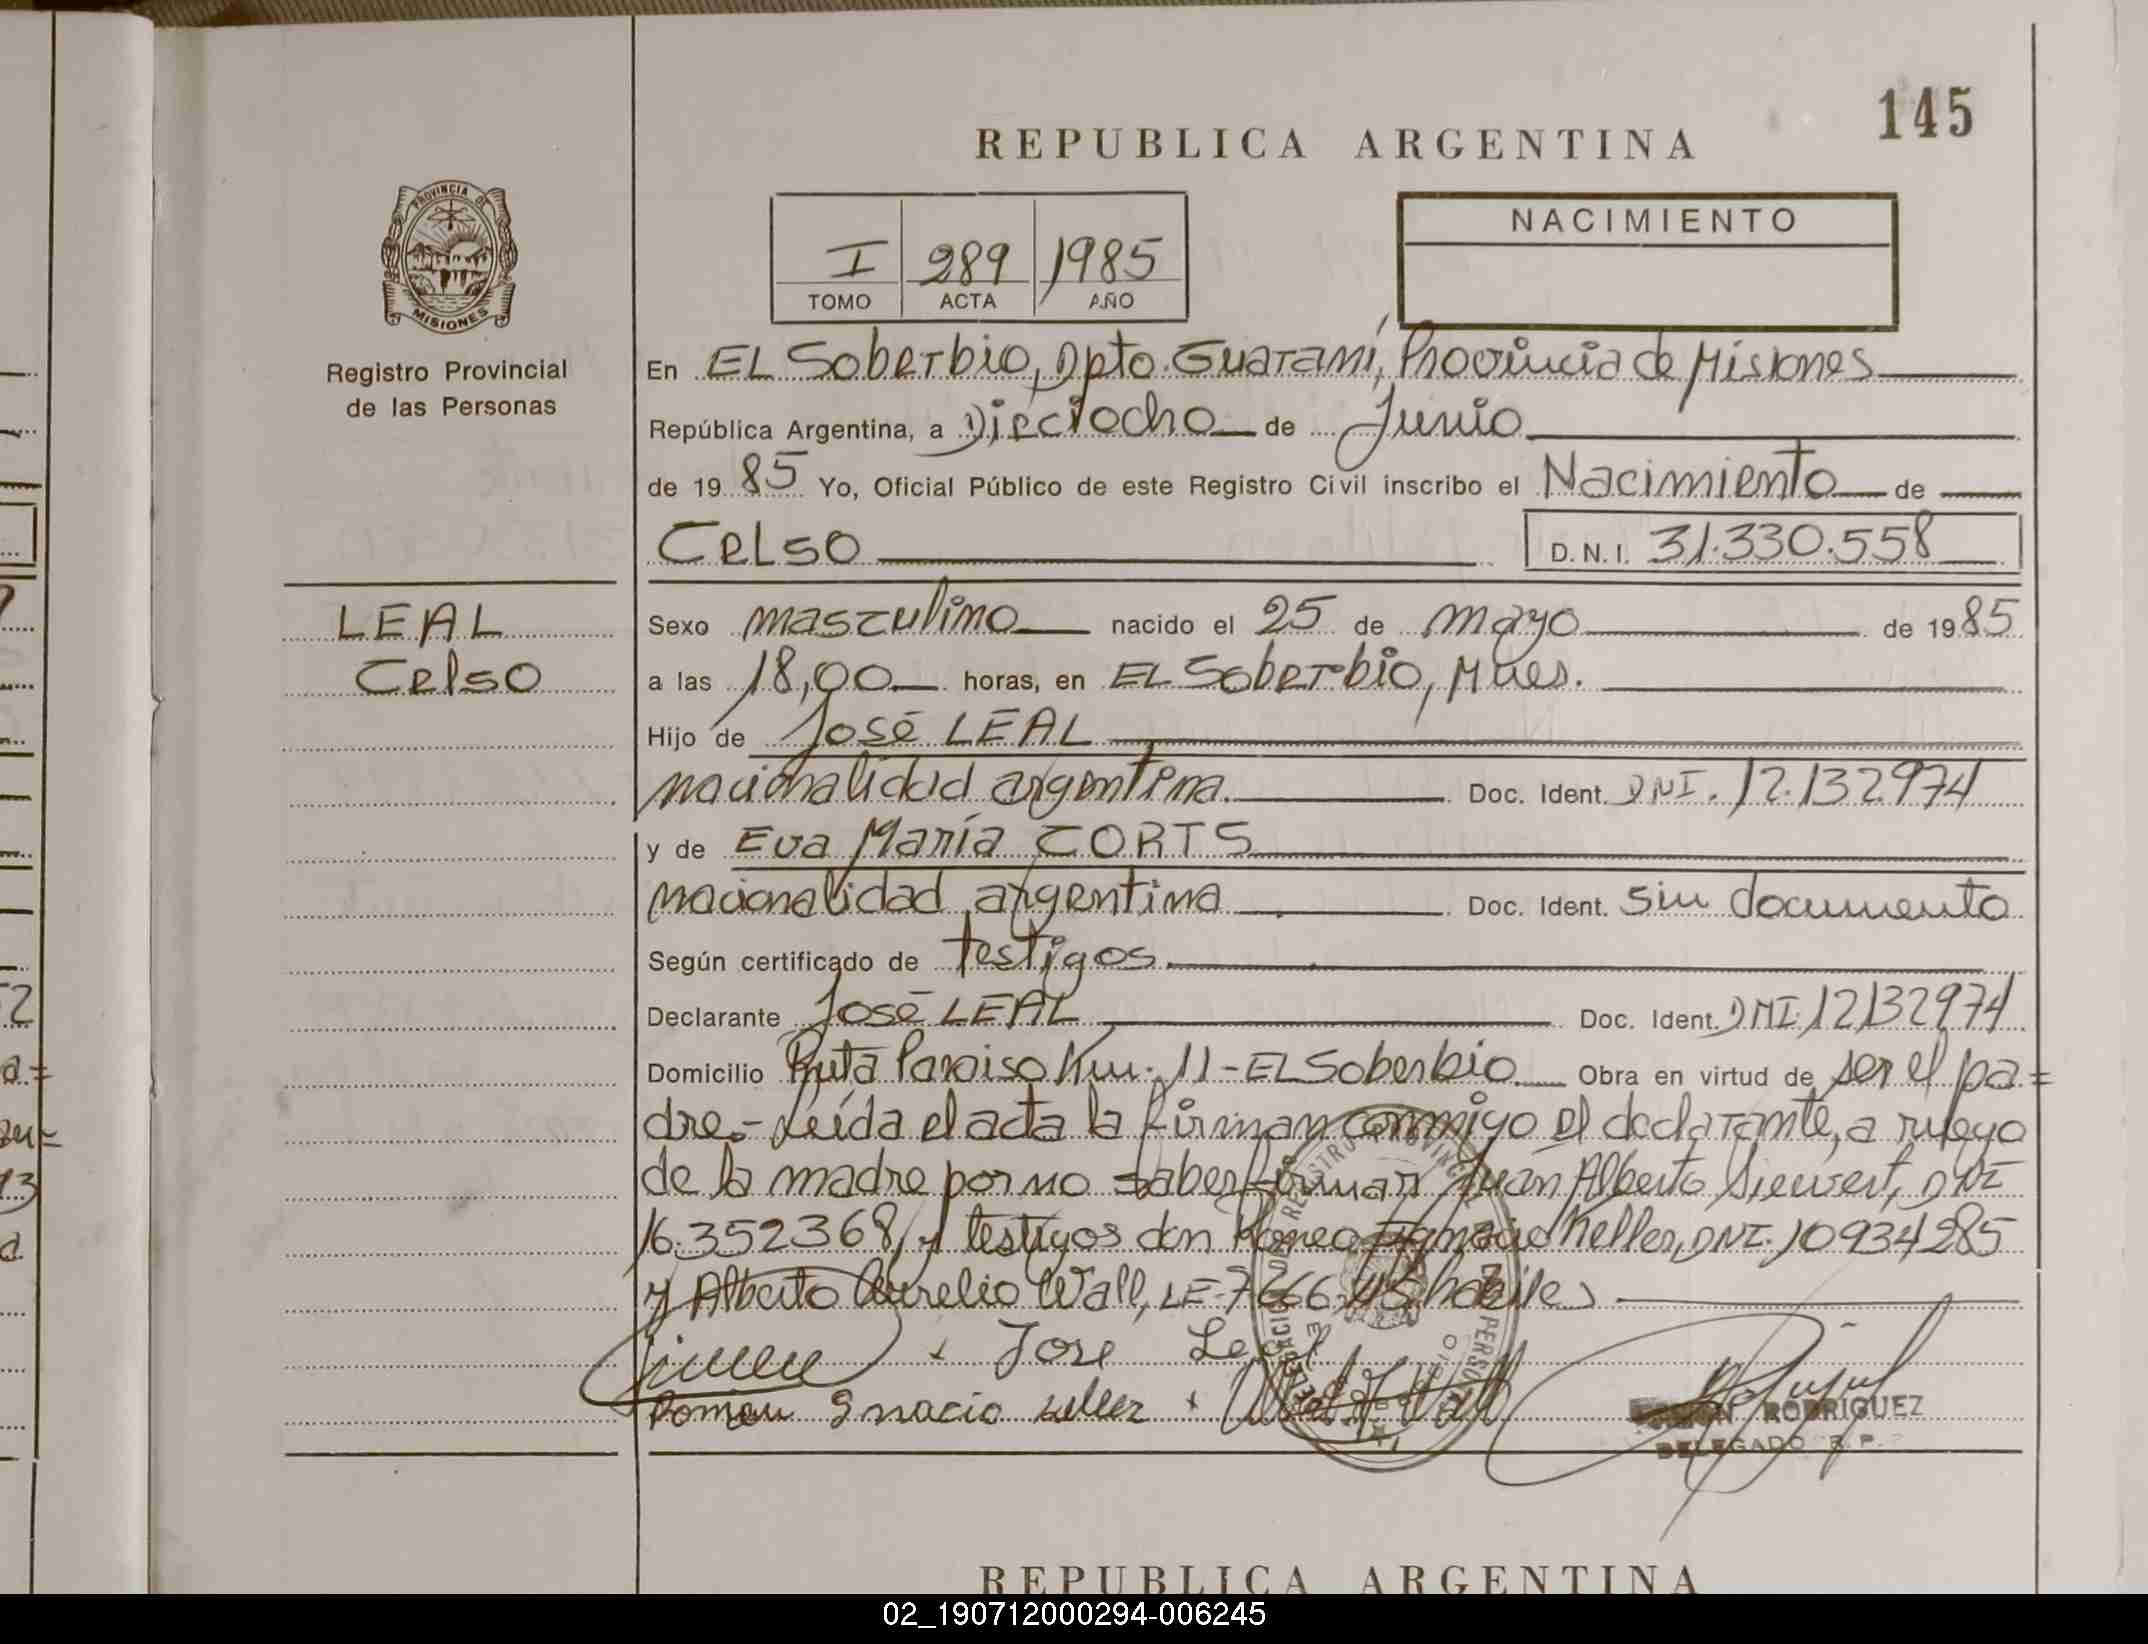 145
REPUBLICA ARGENTINA
PROVINCIA DE
MISIONES
Registro Provincial
de las Personas
I 289 1985
TOMO ACTA AÑO
NACIMIENTO
En EL Soberbio, Dpto. Guaraní, Provincia de Misiones
República Argentina, a Dieciocho de Junio
de 1985 Yo, Oficial Público de este Registro Civil inscribo el Nacimiento de
Celso D.N.I. 31.330.558
LEAL
Celso
Sexo masculino nacido el 25 de mayo de 1985
a las 18,00 horas, en EL Soberbio, Mnes.
Hijo de José LEAL
nacionalidad argentina. Doc. Ident. DNI. 12.132974
y de Eva María CORTS
nacionalidad argentina Doc. Ident. sin documento
Según certificado de testigos.
Declarante José LEAL Doc. Ident. DNI. 12132974
Domicilio Ruta Paraiso Km. 11-EL Soberbio Obra en virtud de ser el pa=
dre.- Leída el acta la firman conmigo el declarante, a ruego
de la madre por no saber firmar Juan Alberto Sievert, DNI
16.352368, y testigos don Ignacio Keller, DNI. 10934285
y Alberto Aurelio Wall, LE. hábiles
Jose Leal
Roman Ignacio Keller
RODRIGUEZ
DELEGADO R. P.
REPUBLICA ARGENTINA
02_190712000294-006245